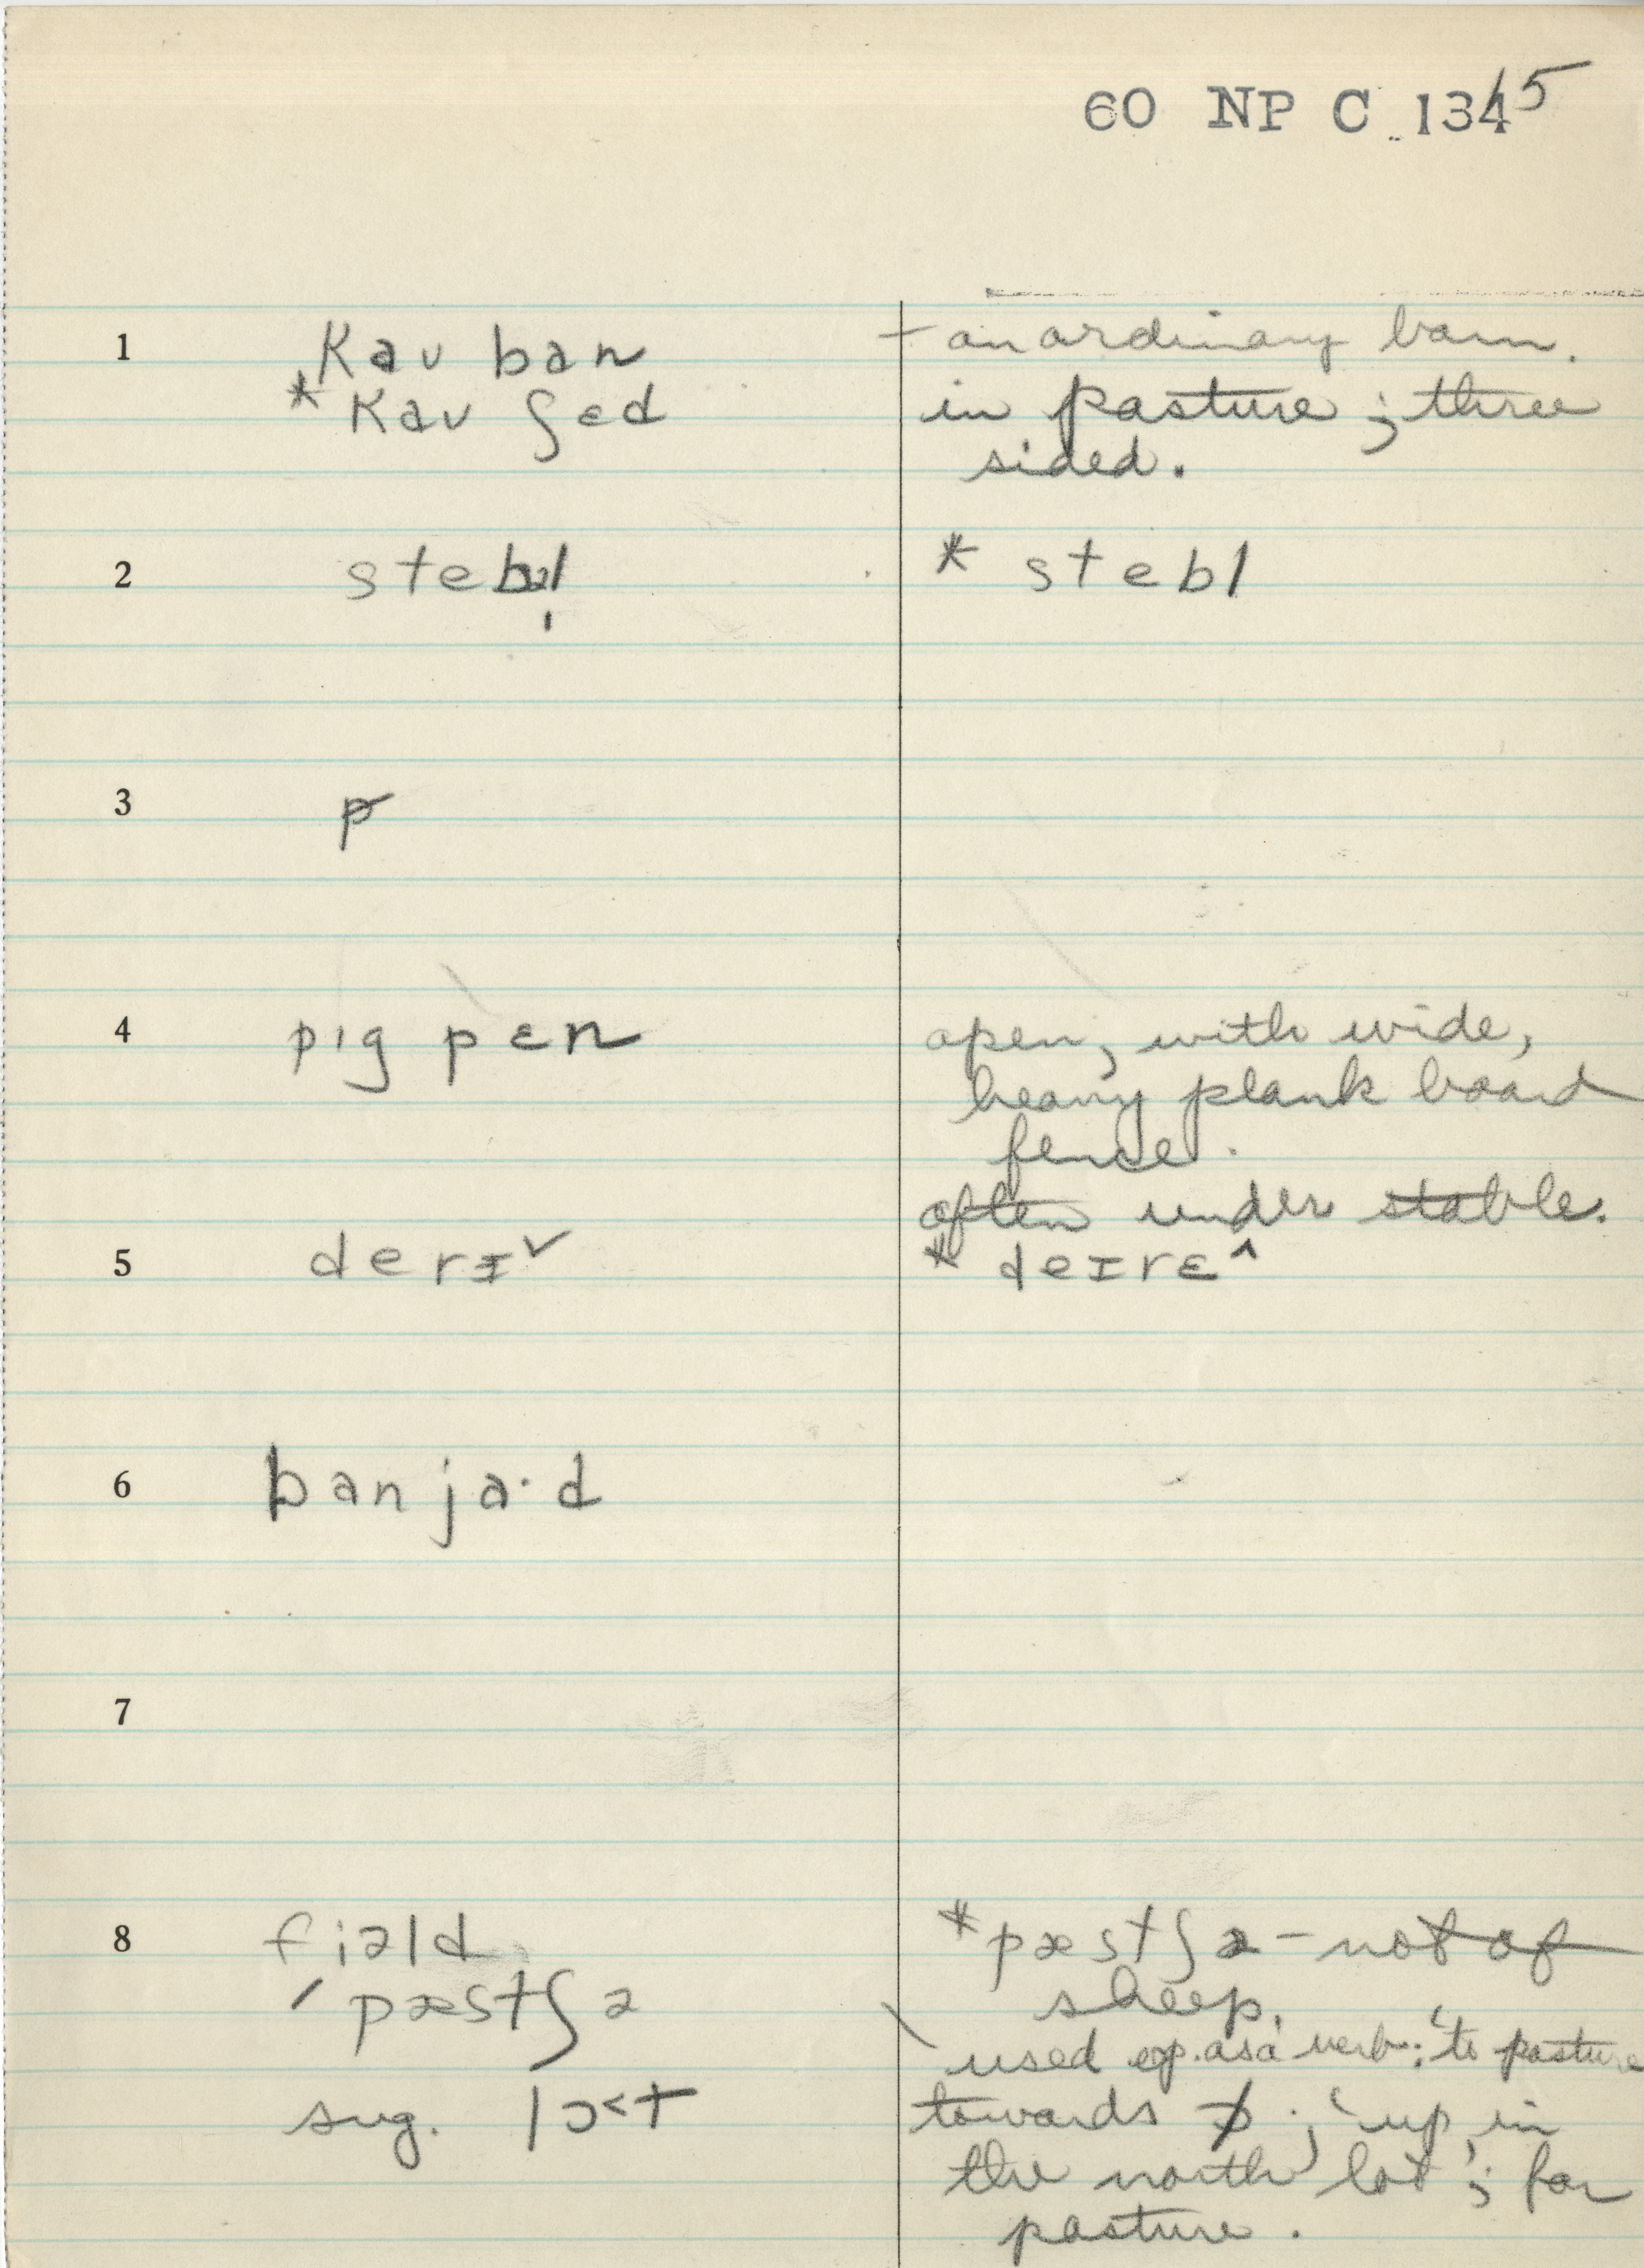 60 NP C 1345
1 kau ban – an ordinary barn.
* kau ʃɛd in pasture; three
sided.
2 stebl̩ * stebl
3 p
4 pɪg pɛn open, with wide,
heavy plank board
fence.
often under stable.
5 derɪ˅ * deɪrɛ^
6 banja·d
7
8 fiəld * pæstʃə – not of
sheep.
/ pæstʃə
\ used esp. as a verb: 'to pasture
sug. lɔ<t towards ; 'up in
the north lot'; for
pasture.